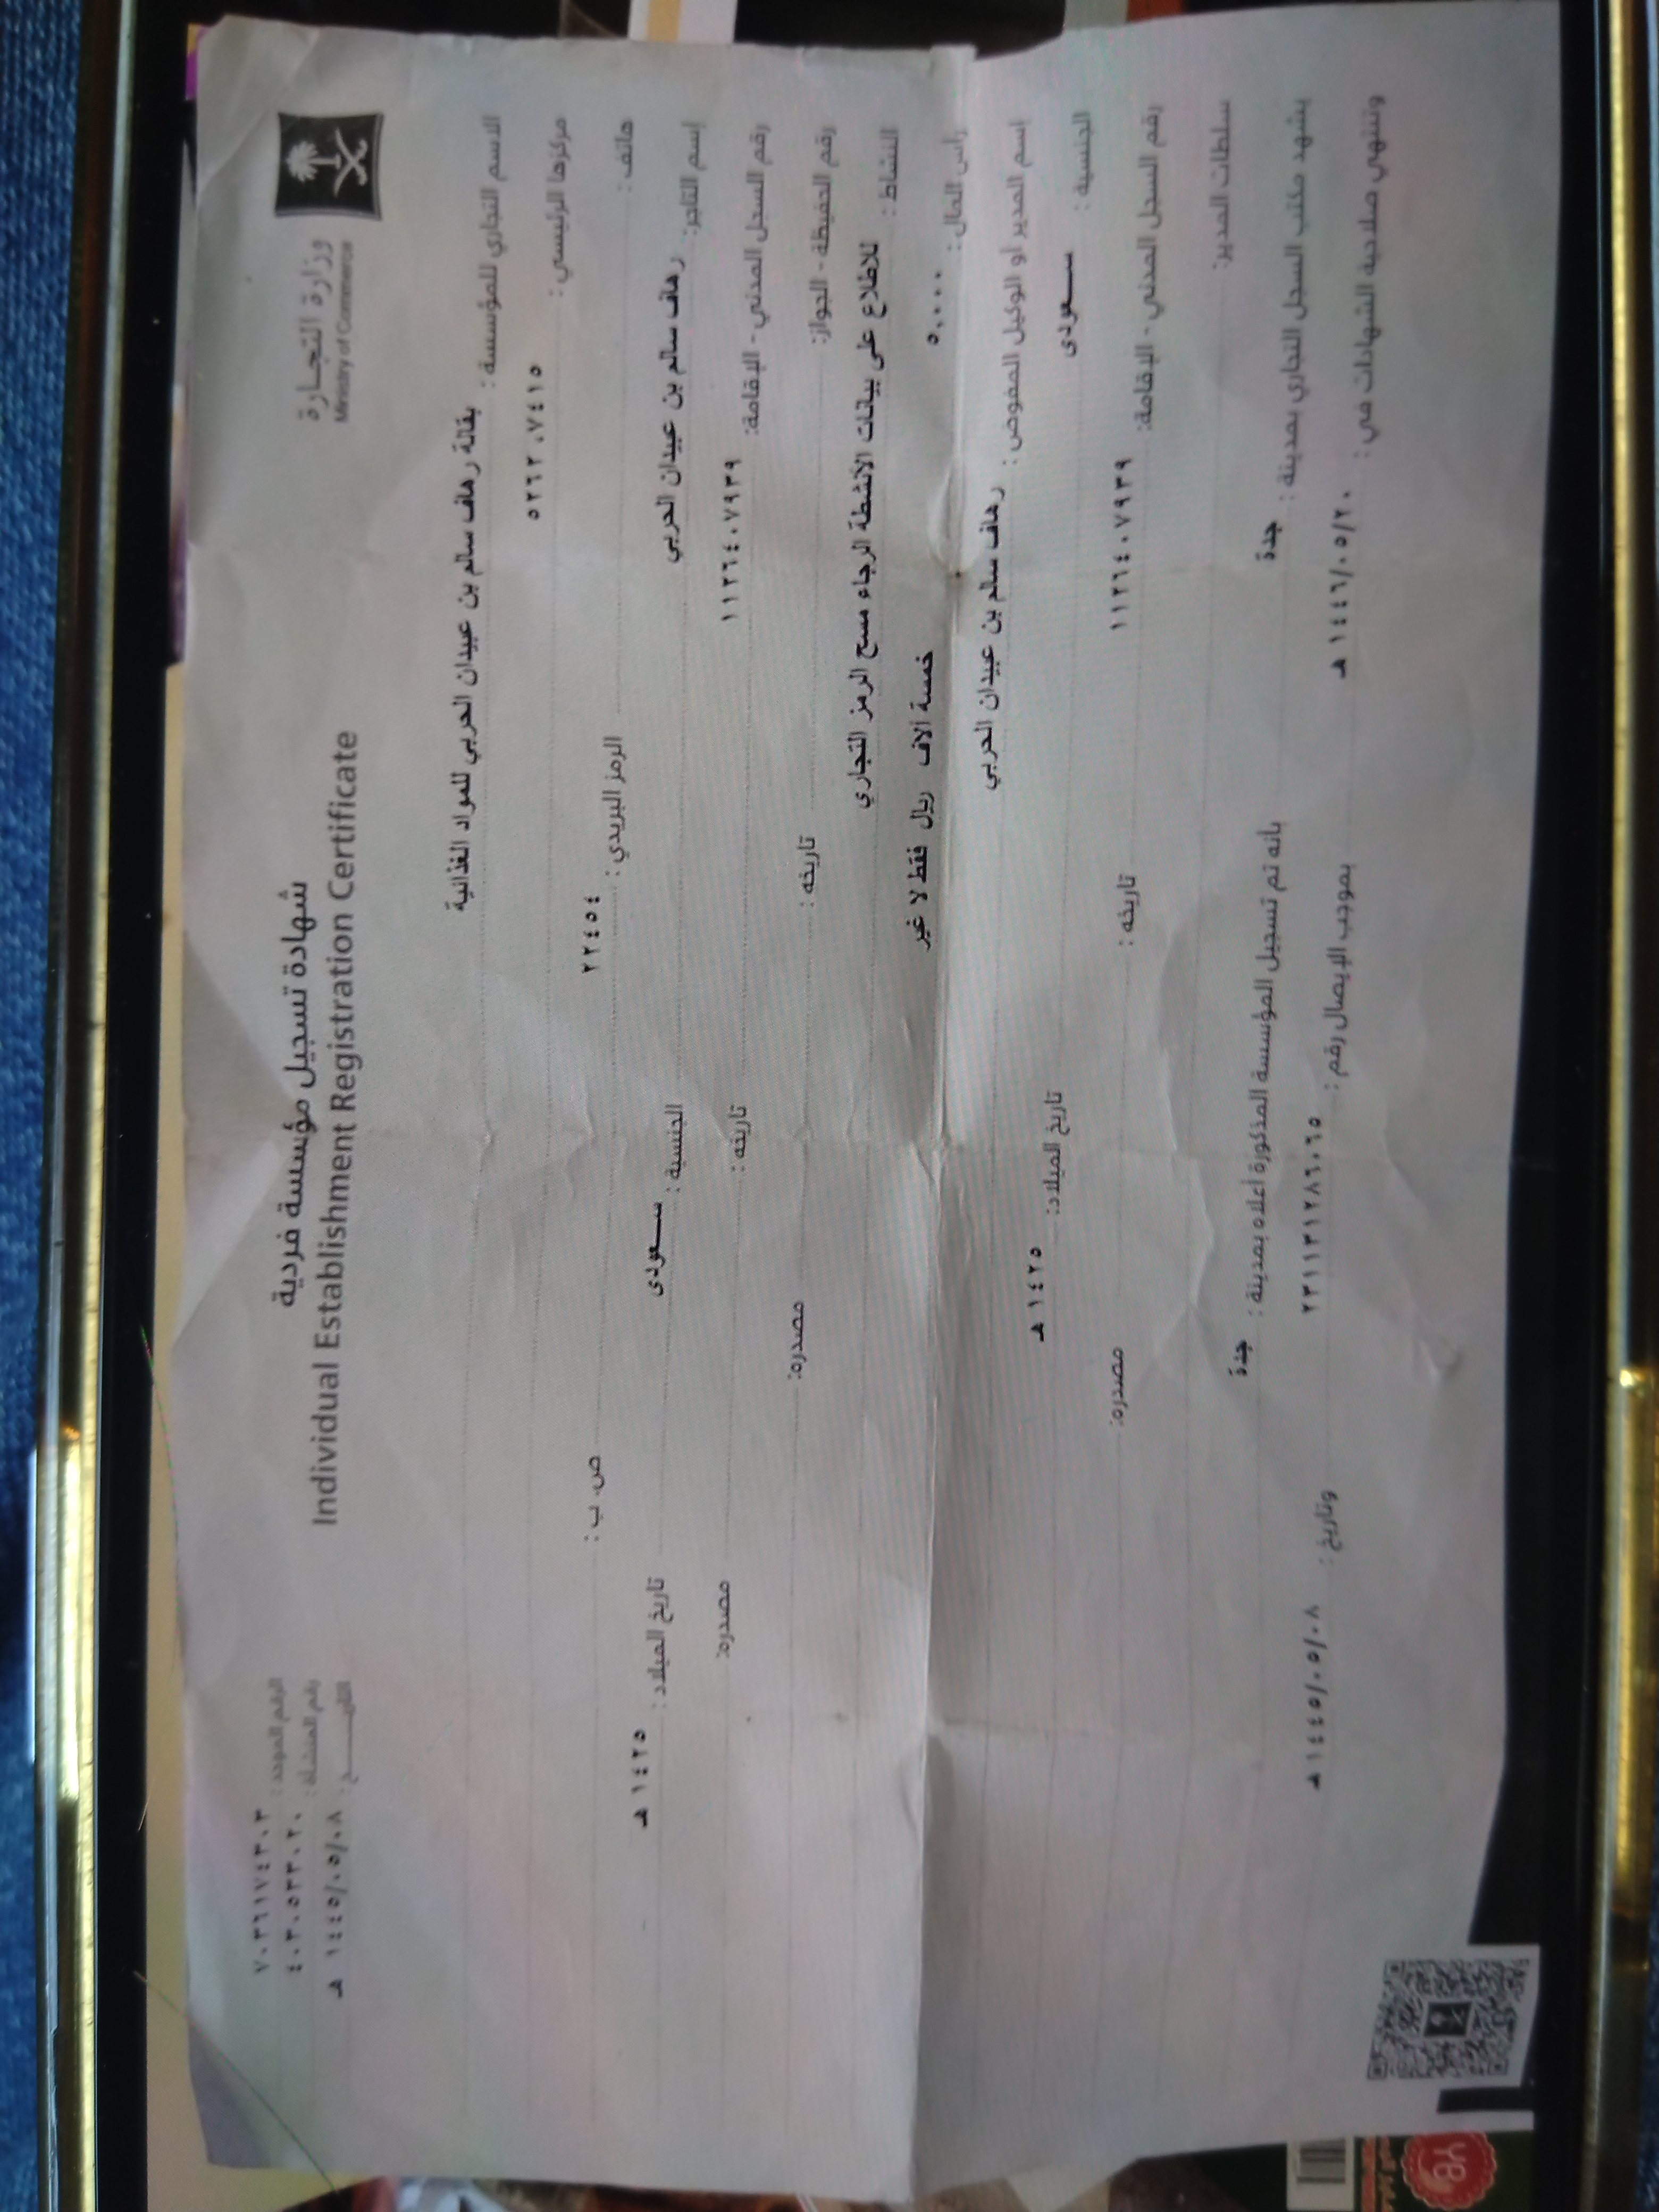 وزارة التجارة
Ministry of Commerce
شهادة تسجيل مؤسسة فردية
Individual Establishment Registration Certificate
الرقم الموحد : ٧٠٣٦١٧٤٣٠٣
رقم المنشأة : ٤٠٣٠٥٣٣٠٢٠
التاريـــــخ : ١٤٤٥/٠٥/٠٨ هـ
الاسم التجاري للمؤسسة : بقالة رهاف سالم بن عبيدان الحربي للمواد الغذائية
مركزها الرئيسي : ٥٢٦٢٠٧٤١٥
هاتف : الرمز البريدي : ٢٢٤٥٤ ص. ب :
إسم التاجر: رهاف سالم بن عبيدان الحربي الجنسية : سعودى تاريخ الميلاد : ١٤٢٥ هـ
رقم السجل المدني - الإقامة: ١١٢٦٤٠٧٩٣٩ تاريخه : مصدره:
رقم الحفيظة - الجواز: تاريخه : مصدره:
النشاط : للاطلاع على بيانات الأنشطة الرجاء مسح الرمز التجاري
رأس المال : ٥,٠٠٠ خمسة آلاف ريال فقط لا غير
إسم المدير أو الوكيل المفوض : رهاف سالم بن عبيدان الحربي
الجنسية : سعودى تاريخ الميلاد: ١٤٢٥ هـ
رقم السجل المدني - الإقامة: ١١٢٦٤٠٧٩٣٩ تاريخه : مصدره:
سلطات المدير:
يشهد مكتب السجل التجاري بمدينة : جدة بانه تم تسجيل المؤسسة المذكورة اعلاه بمدينة : جدة
وتنتهي صلاحية الشهادات في : ١٤٤٦/٠٥/٢٠ هـ بموجب الإيصال رقم : ٢٣١١٣١٢٨٦٠٦٥ وتاريخ : ١٤٤٥/٠٥/٠٨ هـ
YB